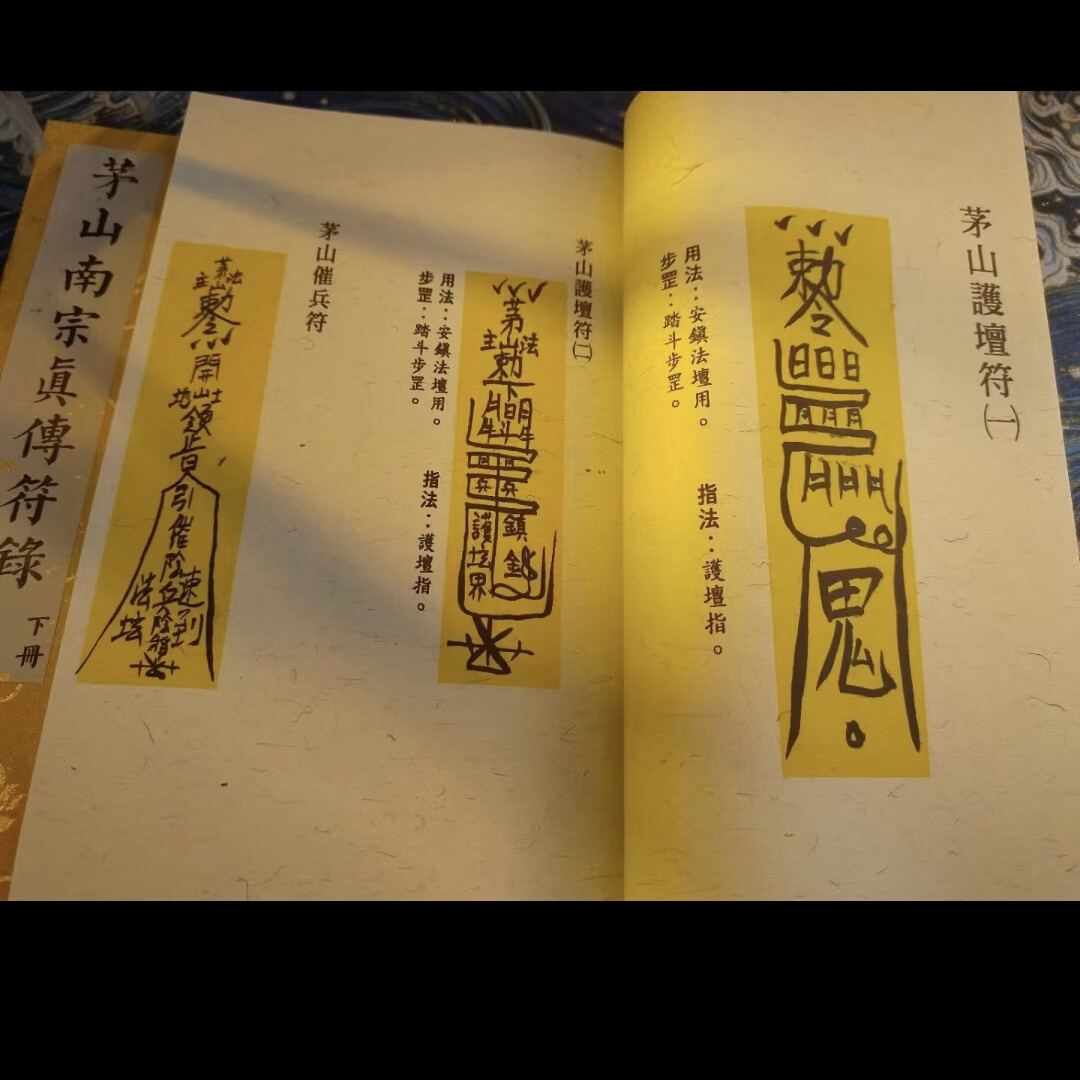 茅山護壇符㈠
用法：安鎮法壇用。　指法：護壇指。
步罡：踏斗步罡。
勅令
鬼
茅山護壇符㈡
用法：安鎮法壇用。　指法：護壇指。
步罡：踏斗步罡。
茅山
法
主
勅
下
鎮
護坛界
茅山催兵符
茅山
法
主
勅令
開
山
土
地
領旨
引催陰兵陰將
速到
法坛
茅山南宗眞傳符錄
下冊